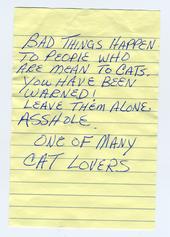 BAD THINGS HAPPEN
TO PEOPLE WHO
ARE MEAN TO CATS.
YOU HAVE BEEN
WARNED!
LEAVE THEM ALONE,
ASSHOLE.
ONE OF MANY
CAT LOVERS